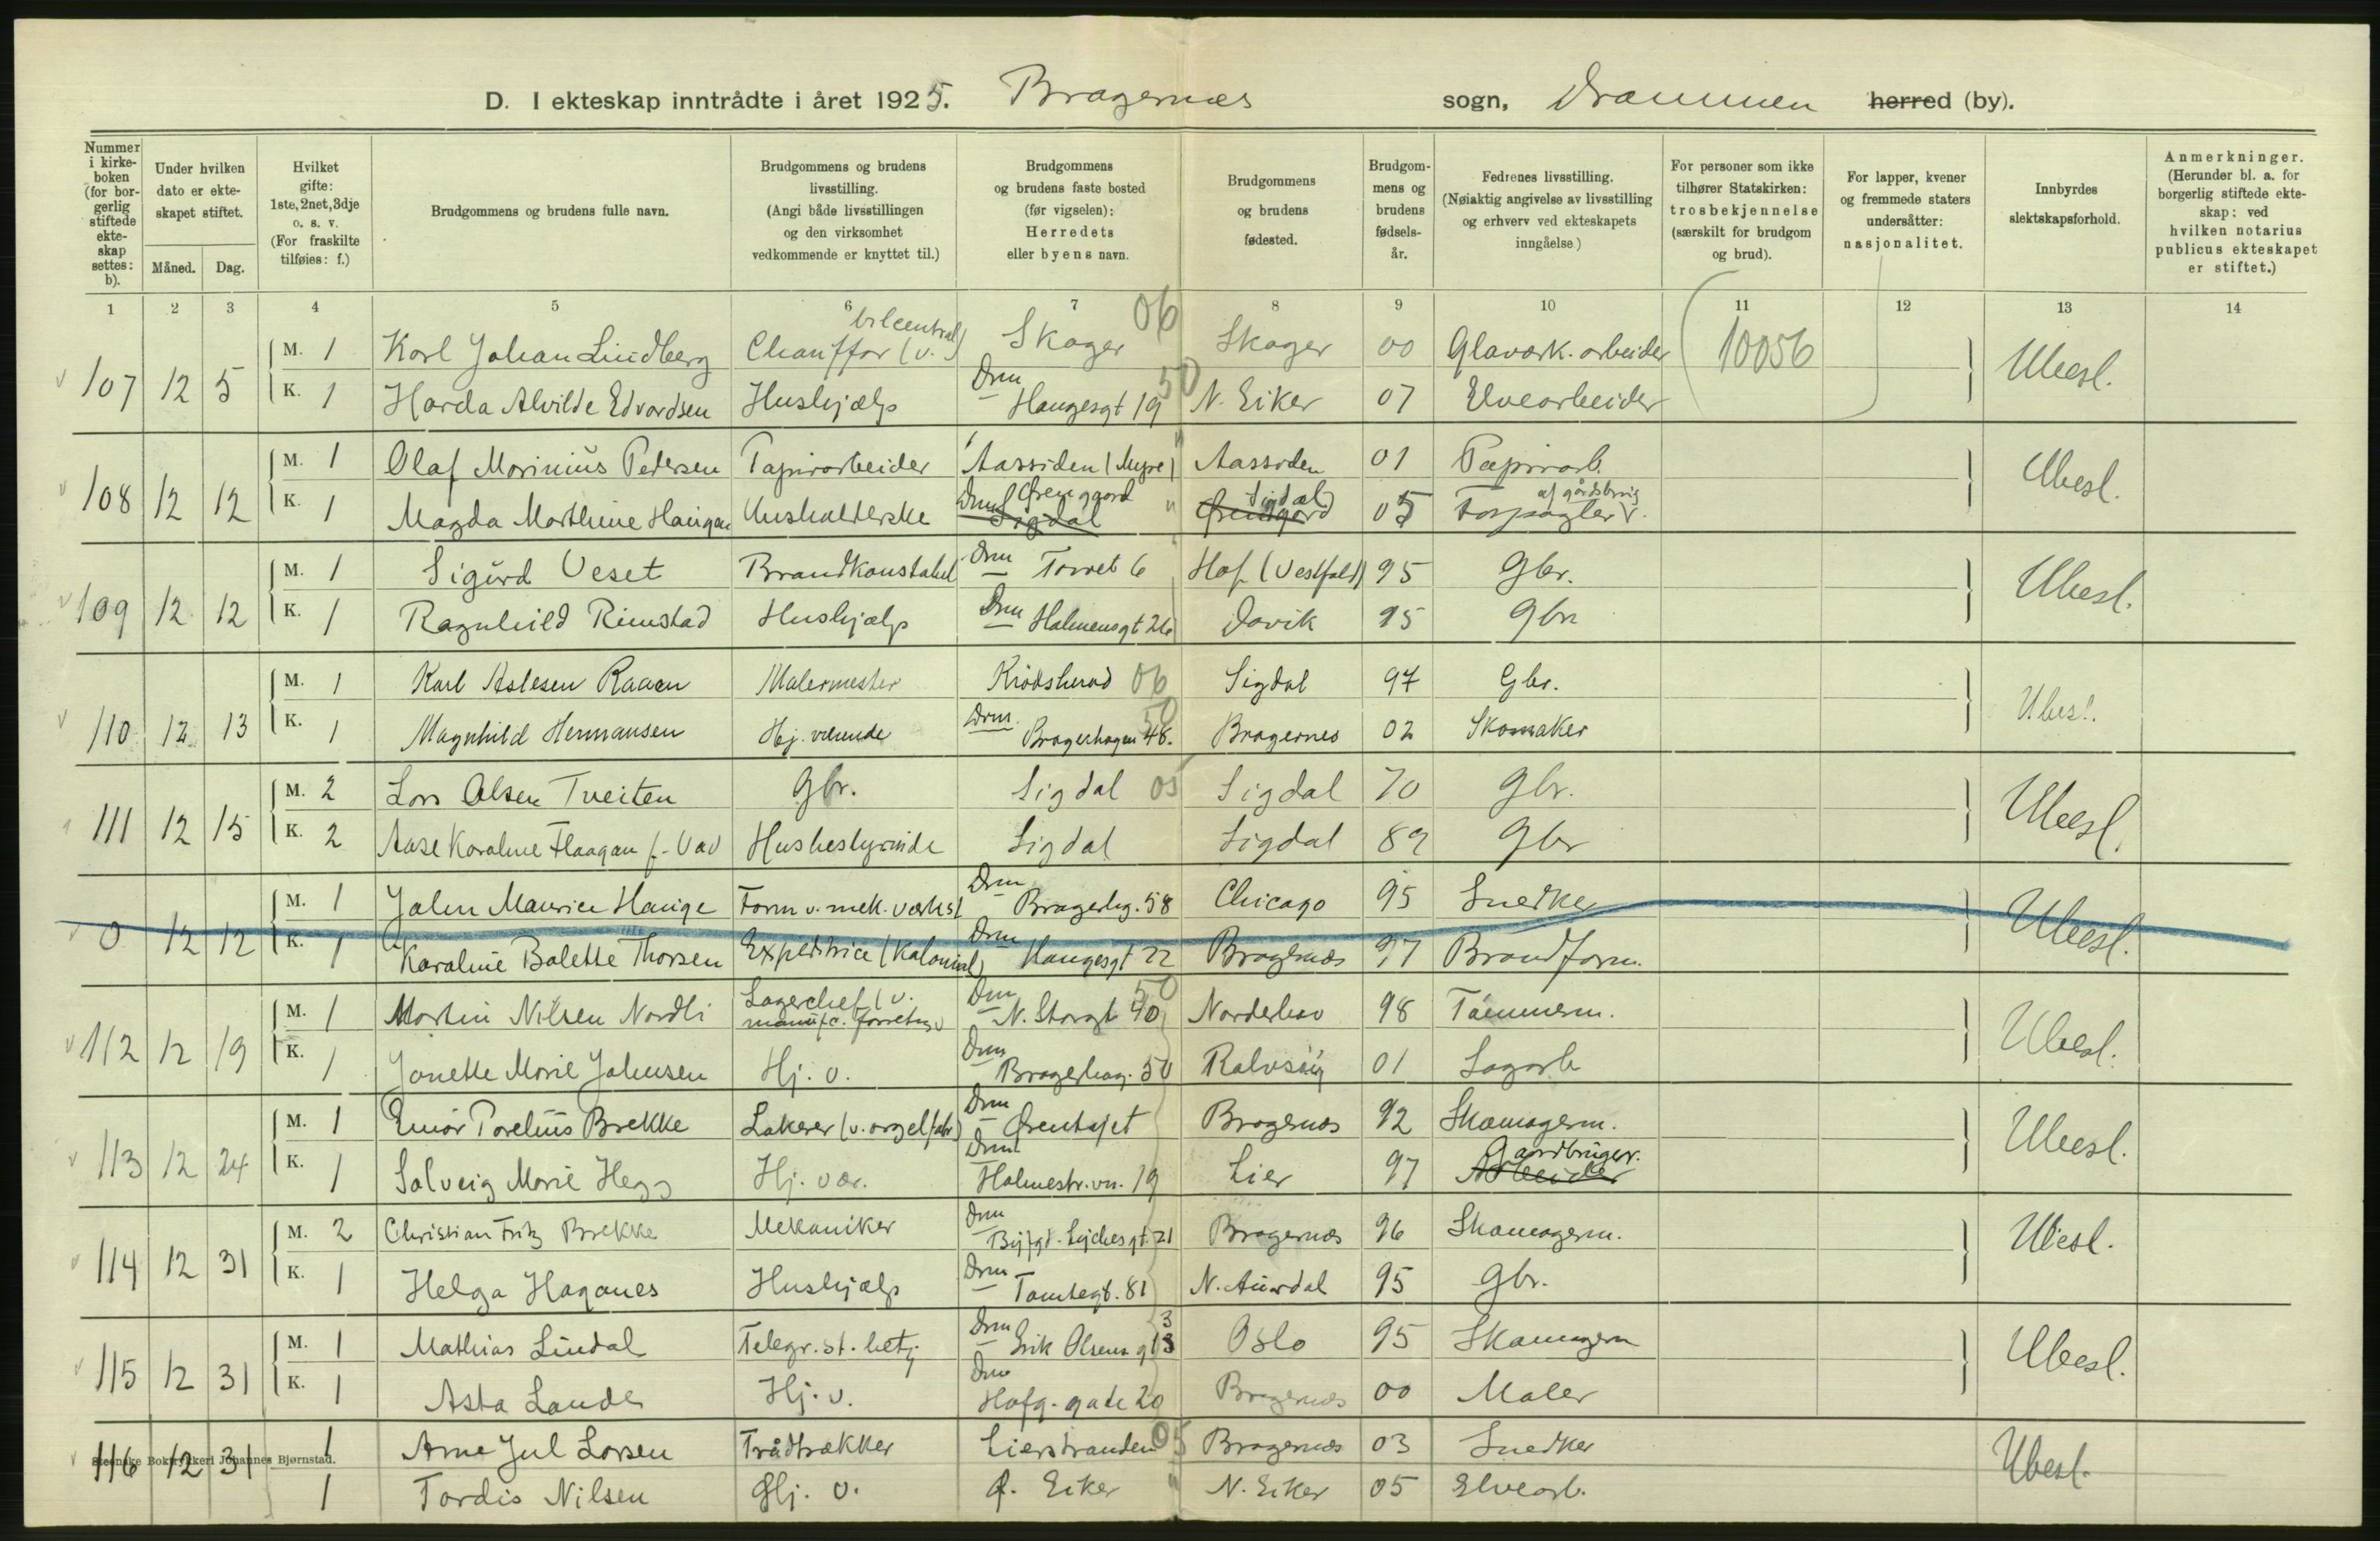 D. I ekteskap inntrådte i året 1925. Bragernæs sogn, Drammen herred (by).
Nummer i kirkeboken (for borgerlig stiftede ekteskap settes: b).
Under hvilken dato er ekteskapet stiftet.
Måned. Dag.
Hvilket gifte: 1ste, 2net, 3dje o. s. v. (For fraskilte tilføies: f.)
Brudgommens og brudens fulle navn.
Brudgommens og brudens livsstilling. (Angi både livsstillingen og den virksomhet vedkommende er knyttet til.)
Brudgommens og brudens faste bosted (før vigselen): Herredets eller byens navn.
Brudgommens og brudens fødested.
Brudgommens og brudens fødselsår.
Fedrenes livsstilling. (Nøiaktig angivelse av livsstilling og erhverv ved ekteskapets inngåelse.)
For personer som ikke tilhører Statskirken: trosbekjennelse (særskilt for brudgom og brud).
For lapper, kvener og fremmede staters undersåtter: nasjonalitet.
Innbyrdes slektskapsforhold.
Anmerkninger. (Herunder bl. a. for borgerlig stiftede ekteskap: ved hvilken notarius publicus ekteskapet er stiftet.)
1 2 3 4 5 6 7 8 9 10 11 12 13 14
107 12 5 M. 1 Karl Johan Lindberg Chauffør (v. bilcentral) Skoger 06 Skoger 00 Glaværk. arbeider 10056 Ubesl.
K. 1 Harda Alvilde Edvardsen Hushjælp Drm Haugesgt 19 50 N. Eiker 07 Elvearbeider
108 12 12 M. 1 Olaf Marinius Pedersen Papirarbeider Aassiden (Myre) Aassiden 01 Papirarb. Ubesl.
K. 1 Magda Marthine Haugan Husholderske Drm Ørenggord Sigdal Sigdal Ørenggord 05 Forpagter af gårdsbrug
109 12 12 M. 1 Sigurd Veset Brandkonstabel Drm Torvet 6 Hof (Vestfold) 95 Gbr. Ubesl.
K. 1 Ragnhild Rimstad Hushjælp Drm Holmensgt 26 Davik 95 Gbr
110 12 13 M. 1 Karl Aslesen Raaen Malermester Krødsherad 06 Sigdal 97 Gbr. Ubesl.
K. 1 Magnhild Hermansen Hj. værende Drm. Bragerhagen 48. 50 Bragernes 02 Skomaker
111 12 15 M. 2 Lars Olsen Tveiten Gbr. Sigdal 05 Sigdal 70 Gbr. Ubesl.
K. 2 Aase Karoline Flaagan f. Vad Husbestyrinde Sigdal Sigdal 89 Gbr
0 12 12 M. 1 John Maurice Hauge Form v. mek. værkst Drm Bragerhg. 58 Chicago 95 Snedker Ubesl.
K. 1 Karoline Bolette Thorsen Expeditrice (Kolonial) Drm Haugesgt 22 Bragernæs 97 Brandform.
112 12 19 M. 1 Martin Nilsen Nordli Lagerchef (v. manufc. forretng) Drm N. Storgt 40 50 Norderhov 98 Tømmerm. Ubesl.
K. 1 Jonette Marie Johnsen Hj. v. Drm Bragerhag. 50 Ralvsøy 01 Sagarb
113 12 24 M. 1 Einar Torelius Brekke Lakerer (v. orgelfabr) Drm Ørenhøjet Bragernæs 92 Skomagerm. Ubesl.
K. 1 Solveig Marie Hegg Hj. vær. Drm Holmestr. vn. 19 Lier 97 Arbeider Gaardbruger.
114 12 31 M. 2 Christian Fritz Brekke Mekaniker Drm Byfgd. Lychesgt. 21 Bragernæs 96 Skomagerm. Ubesl.
K. 1 Helga Haganes Hushjælp Drm Tomtegt. 81 N. Aurdal 95 Gbr.
115 12 31 M. 1 Mathias Lindal Telegr. st. betj Drm Erik Olsens gt 3 Oslo 95 Skomagerm Ubesl.
K. 1 Asta Lande Hj. v. Drm Hofg. gate 20 Bragernæs 00 Maler
116 12 31 1 Arne Jul Larsen Trådtrækker Lierstranden 05 Bragernæs 03 Snedker Ubesl.
Steenske Boktrykkeri Johannes Bjørnstad.
1 Tordis Nilsen Hj. v. Ø. Eiker N. Eiker 05 Elvearb.